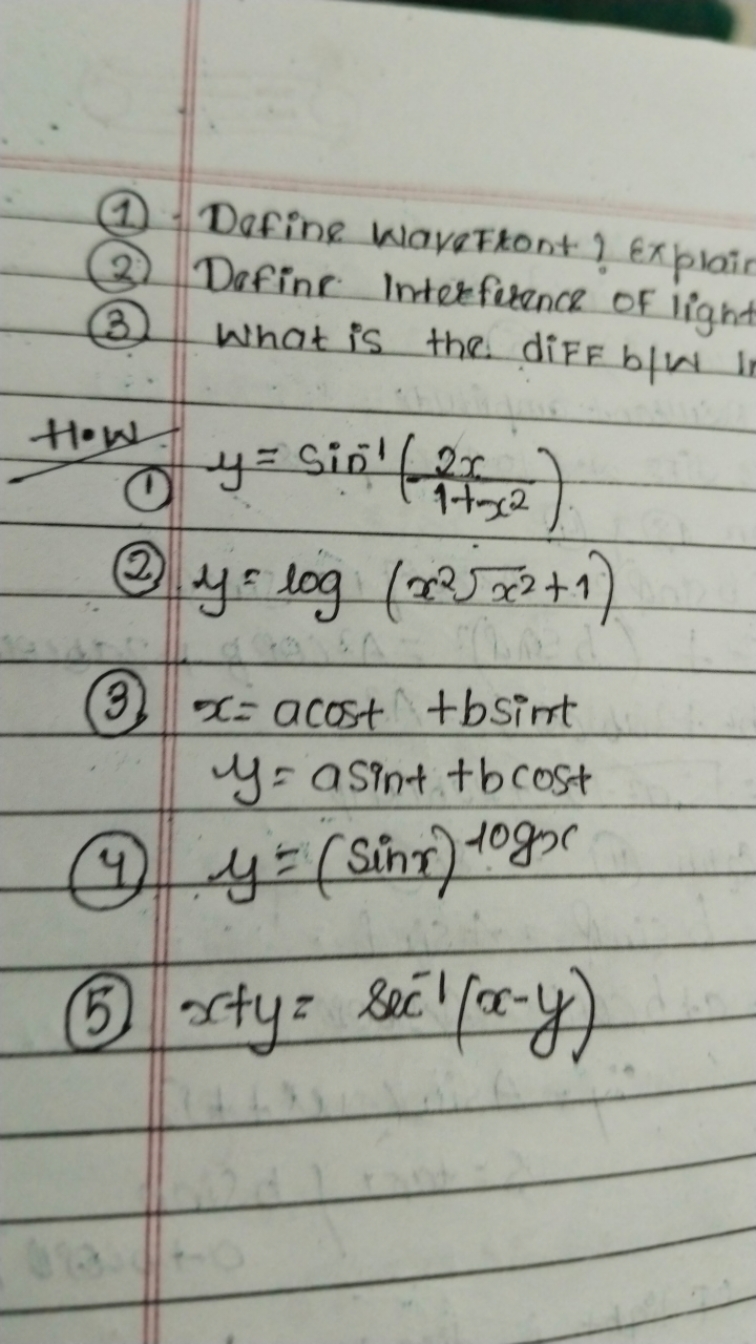 ① Define wavefront ? Explain
② Define Interference OF light
③ What is the diFF b/w In
H.W
① y = sin⁻¹ (2x / 1+x²)
② y = log (x²√x²+1)
③ x = acost + bsint
y = asint + bcost
④ y = (sinx)^logx
⑤ x+y = sec⁻¹ (x-y)